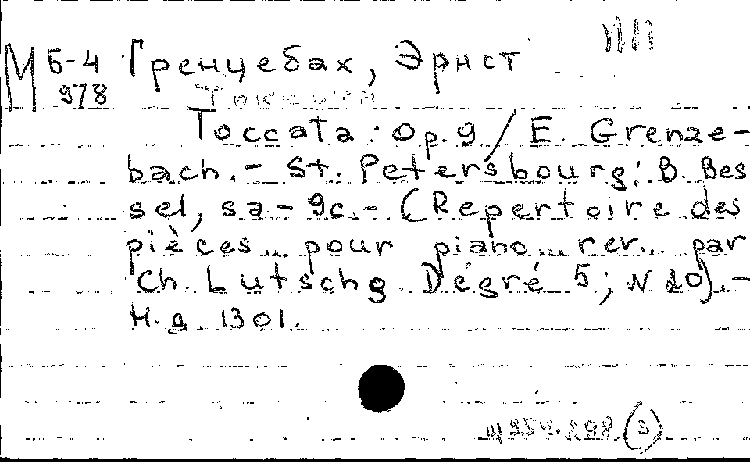 М Б-4 Гренцебах, Эрнст
978 Токката
Toccata: Op. 9 / E. Grenze-
bach. - St. Petersbourg: B. Bes
sel, s.a. - 9c. - (Repertoire des
pièces pour piano rev. par
Ch. Lutschg Degré 5; N 20). -
Н. д. 1301.
(3)